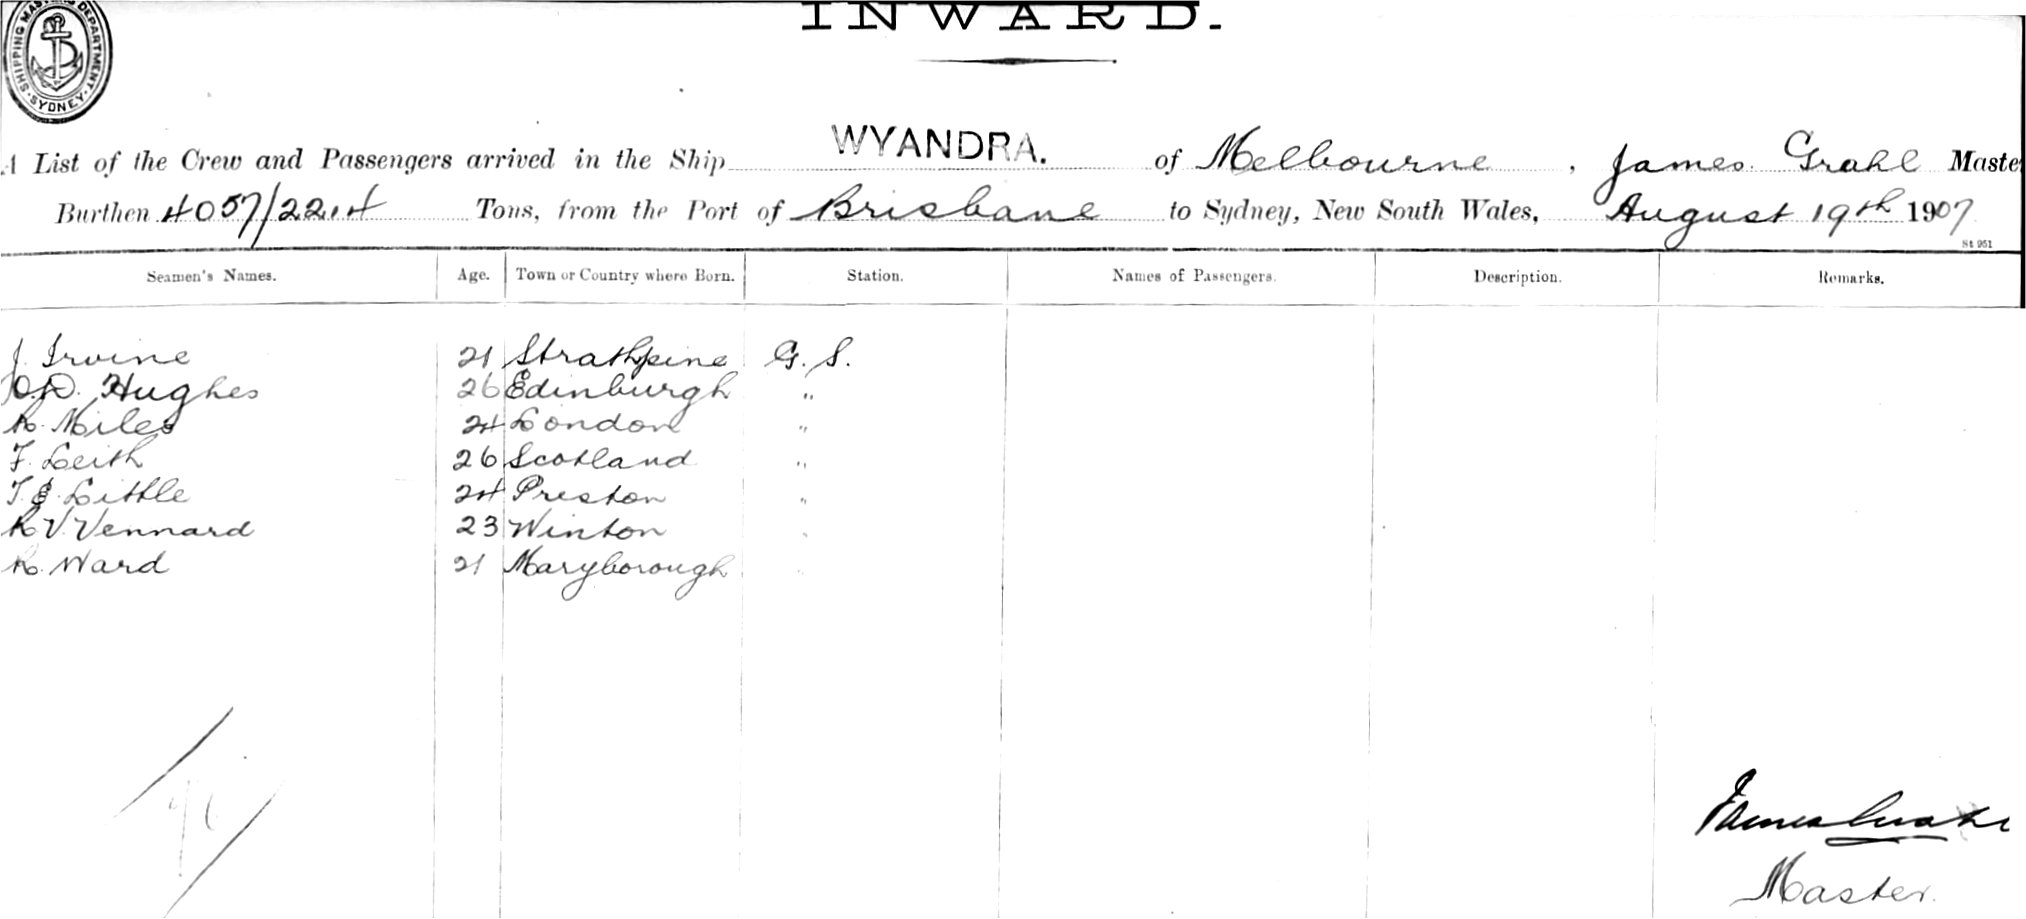 INWARD.
SHIPPING MASTERS DEPARTMENT. SYDNEY.
A List of the Crew and Passengers arrived in the Ship WYANDRA. of Melbourne, James Grahl Master
Burthen 4057/2214 Tons, from the Port of Brisbane to Sydney, New South Wales, August 19th 1907
St 951
Seamen's Names. Age. Town or Country where Born. Station. Names of Passengers. Description. Remarks.
J. Irvine 21 Strathpine G. S.
Hughes 26 Edinburgh "
R. Miles 24 London "
F. Leith 26 Scotland "
T. Little 24 Preston "
R V Vennard 23 Winton "
R. Ward 21 Maryborough "
James Grahl
Master.